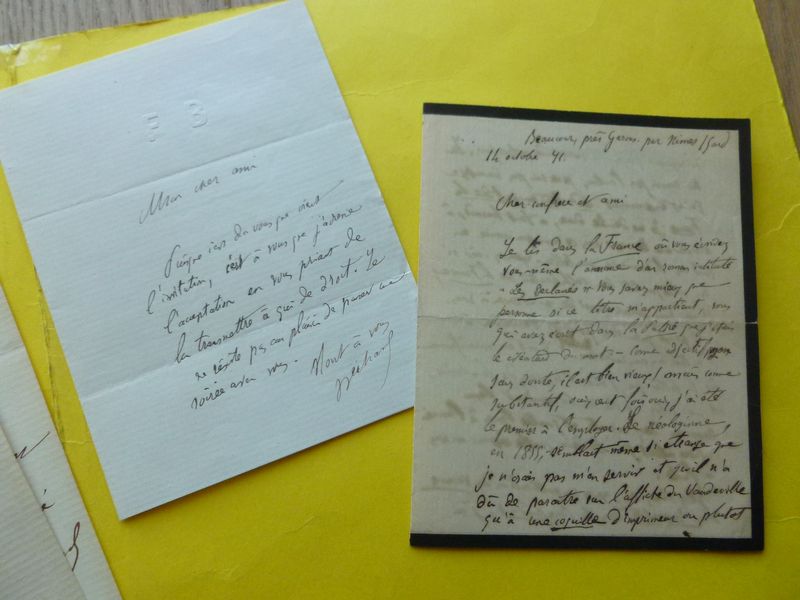 F B
Mon cher ami
Puisque c'est de vous que vient
l'invitation, c'est à vous que j'adresse
l'acceptation en vous priant de
la transmettre à qui de droit. Je
ne résiste pas au plaisir de passer une
soirée avec vous.
Tout à vous
Beaucour, près Gajons. par Nimes (Gard
14 octobre 71.
Cher confrère et ami
Je lis dans la France où vous écrivez
vous-même l'annonce d'un roman intitulé
"Les Déclassés". Vous savez mieux que
personne si ce titre m'appartient, vous
qui avez écrit dans la Patrie que j'étais
le créateur du mot - comme adjectif, non
sans doute, il est bien vieux! mais comme
substantif, oui, cent fois oui, j'ai été
le premier à l'employer. Le néologisme,
en 1855, semblait même si étrange que
je n'osais pas m'en servir et qu'il n'a
dû de paraître sur l'affiche du Vaudeville
qu'à une coquille d'imprimeur ou plutôt